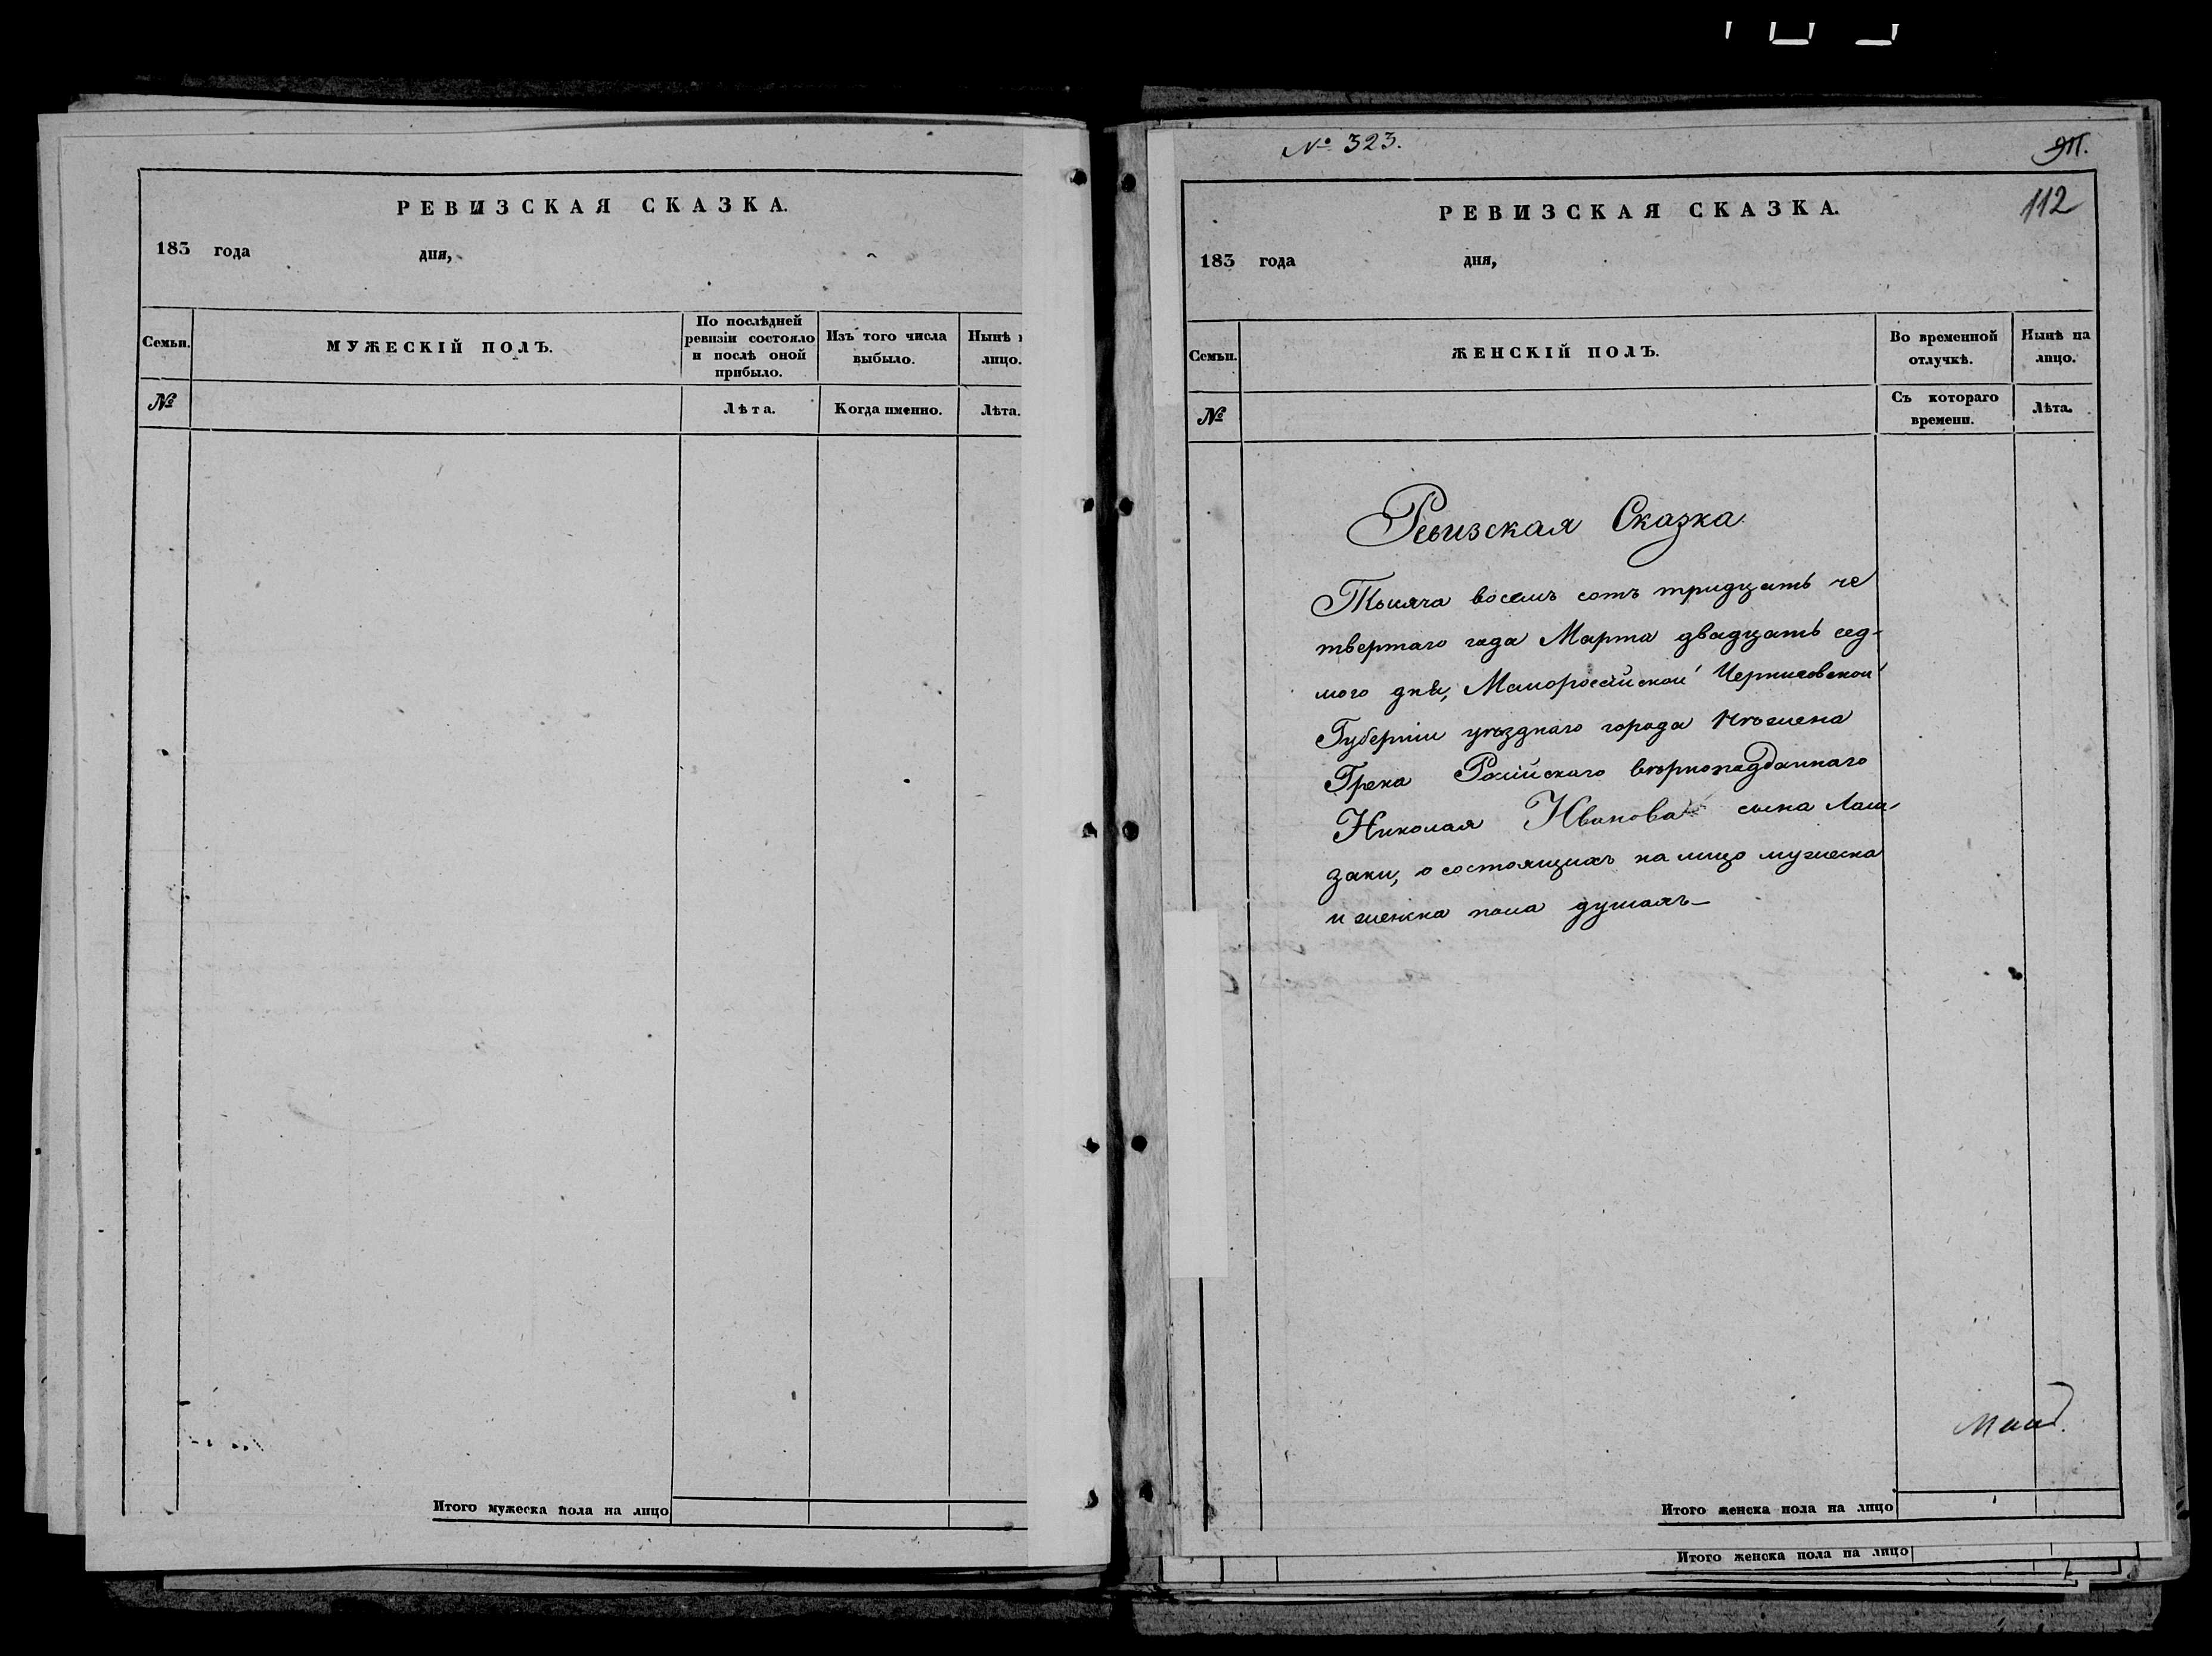 РЕВИЗСКАЯ СКАЗКА.
183 года дня,
Семьи.
МУЖЕСКІЙ ПОЛЪ.
По послѣдней ревизіи состояло и послѣ оной прибыло.
Изъ того числа выбыло.
Нынѣ
лицо.
№
Лѣта.
Когда именно.
Лѣта.
Итого мужеска пола на лицо
№ 323.
112
РЕВИЗСКАЯ СКАЗКА.
183 года дня,
Семьи.
ЖЕНСКІЙ ПОЛЪ.
Во временной отлучкѣ.
Нынѣ на лицо.
№
Съ котораго времени.
Лѣта.
Ревизская Сказка
Тысяча восемь сотъ тридцать че
твертаго года Марта двадцать сед-
мого дня, Малороссійской Черниговской
Губерніи уѣзднаго города Нѣжена
Грека Російскаго вѣрноподданнаго
Николая Иванова сына
заки, о состоящихъ на лицо мужеска
и женска пола душахъ—
Итого женска пола на лицо
Итого женска пола на лицо